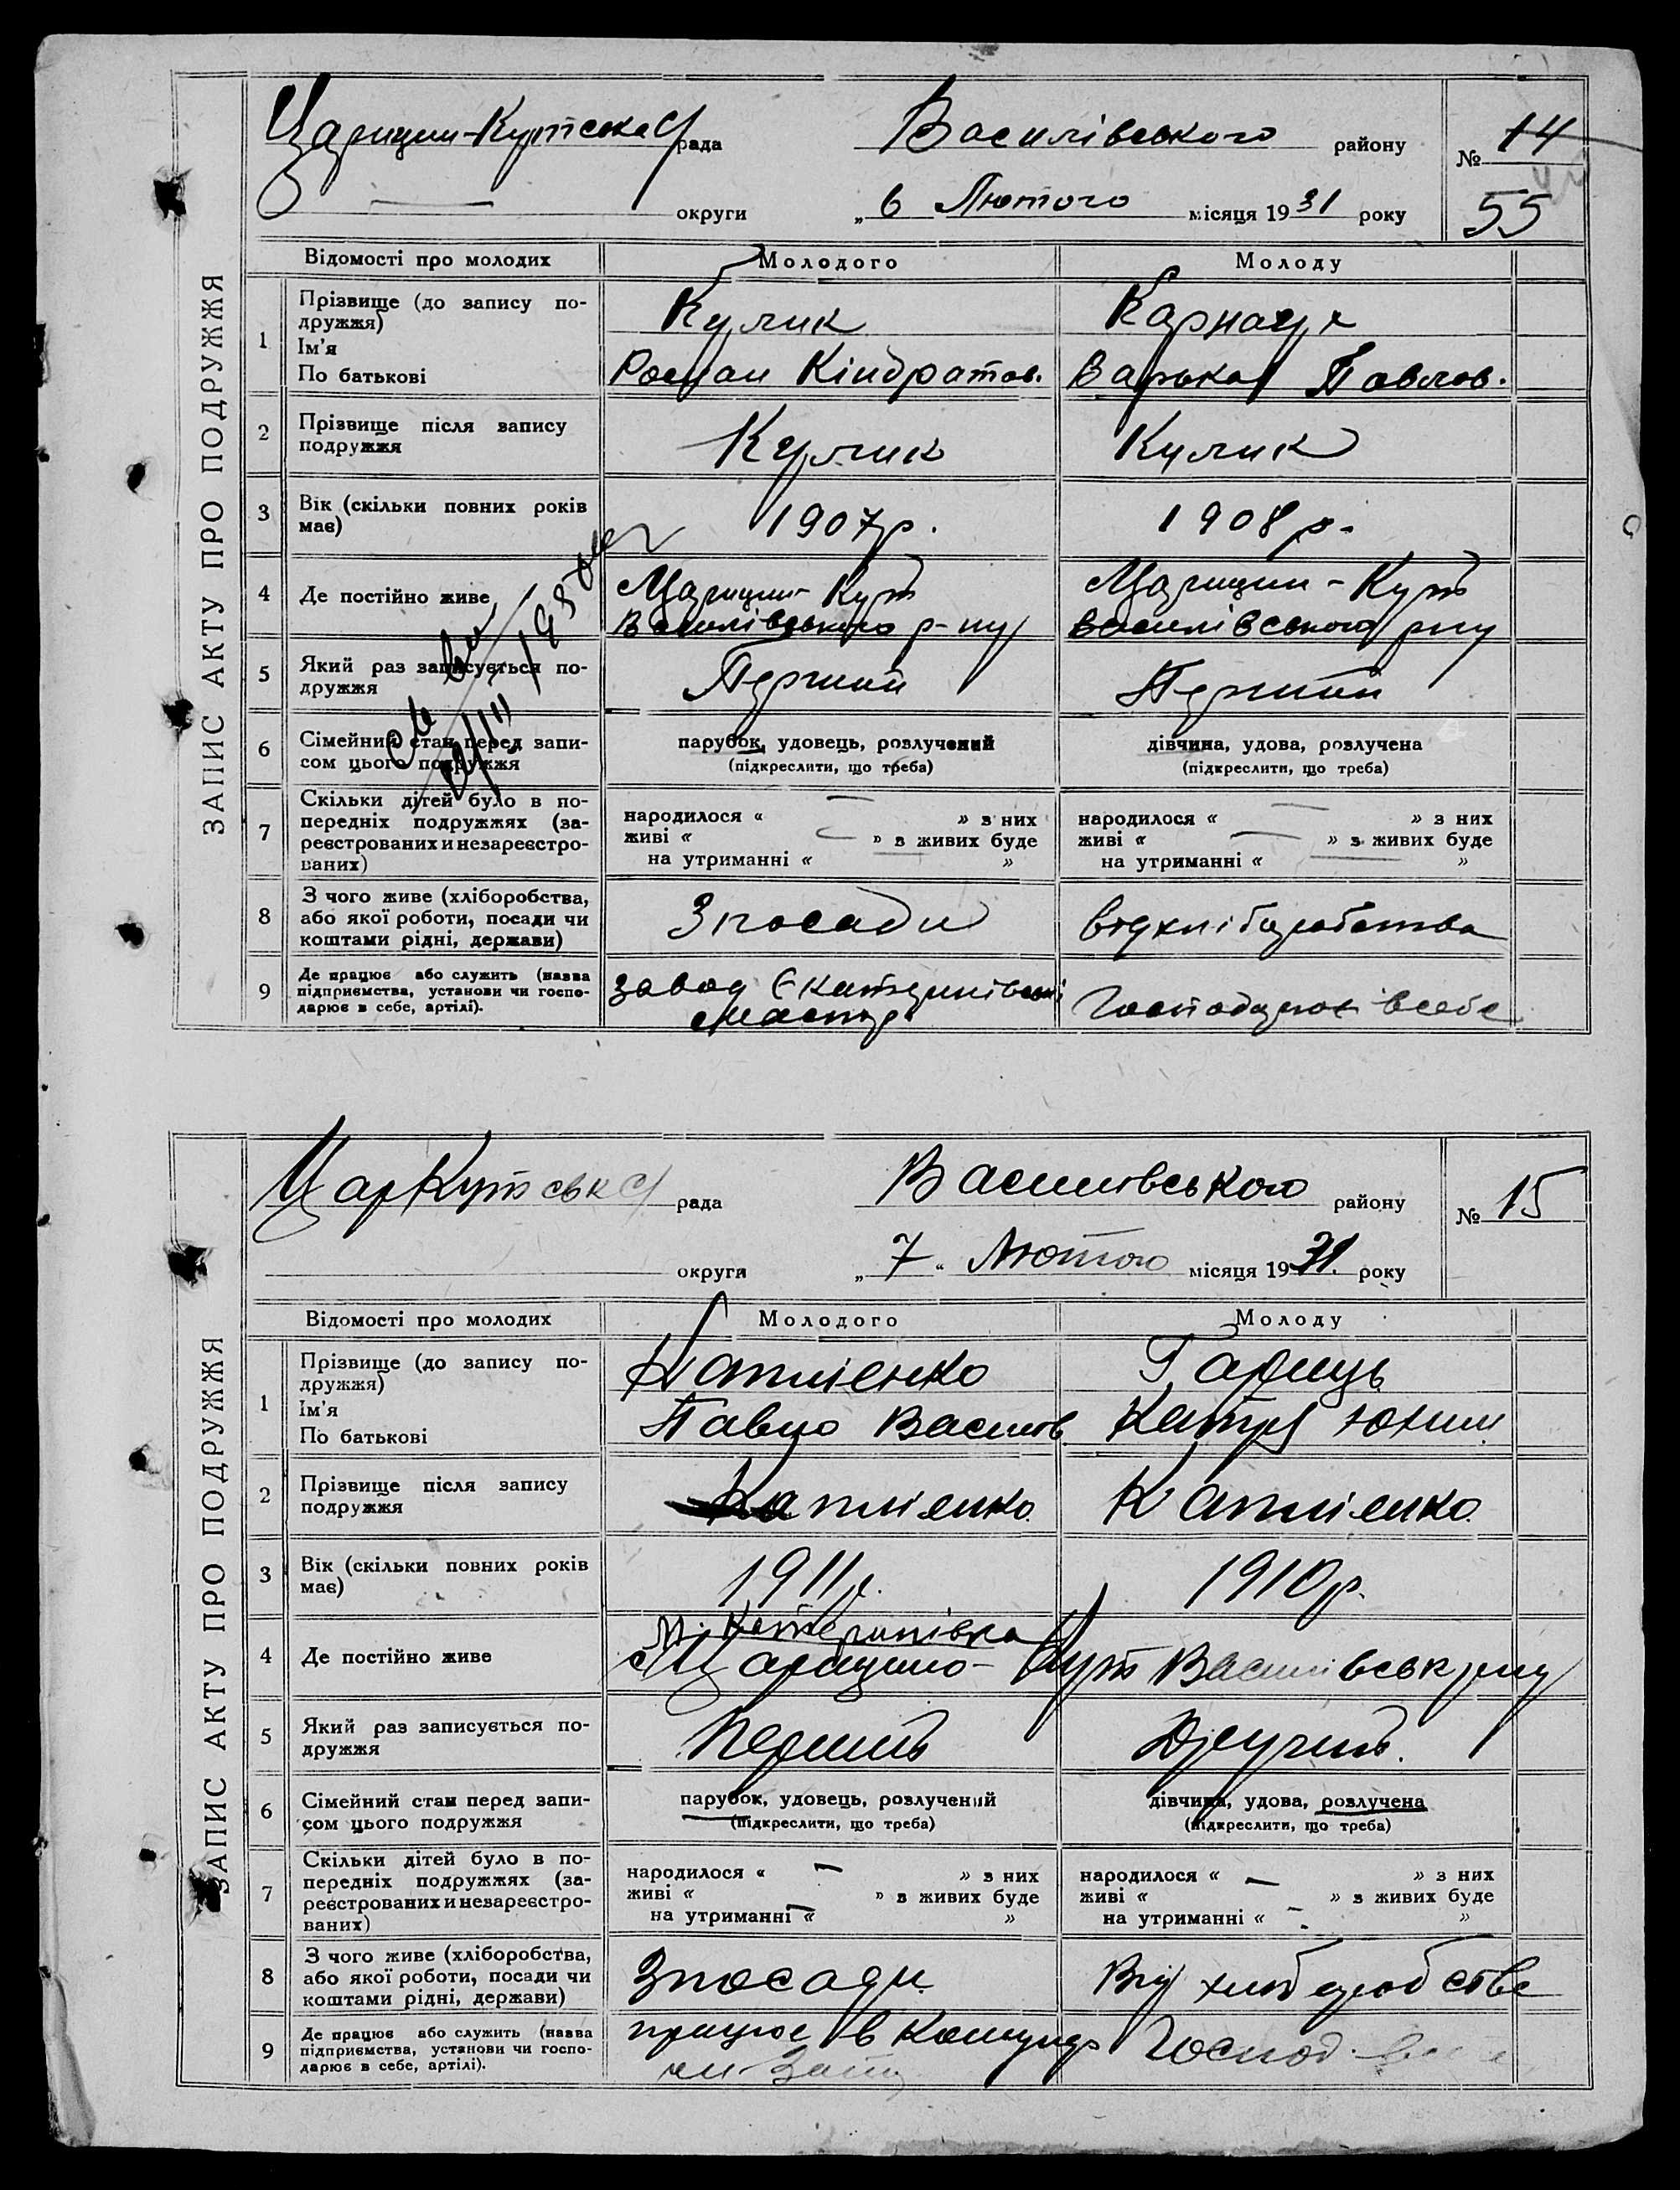 ЗАПИС АКТУ ПРО ПОДРУЖЖЯ
Царицин-Кутська рада Василівського району № 14
округи „ 6 Лютого місяця 1931 року 55
Відомості про молодих Молодого Молоду
1 Прізвище (до запису по-
дружжя) Кулик Карнаух
Ім'я
По батькові Роман Кіндратов. Варька Павлов.
2 Прізвище після запису
подружжя Кулик Кулик
3 Вік (скільки повних років
має) 1907р. 1908р.
4 Де постійно живе Царицин-Кут Царицин-Кут
Василівського р-ну Василівського рну
5 Який раз записується по-
дружжя Перший Перший
6 Сімейний стан перед запи-
сом цього подружжя
парубок, удовець, розлучений дівчина, удова, розлучена
(підкреслити, що треба) (підкреслити, що треба)
7 Скільки дітей було в по-
передніх подружжях (за-
реєстрованих и незареєстро-
ваних)
народилося « — » з них народилося « — » з них
живі « — » з живих буде живі « — » з живих буде
на утриманні « — » на утриманні « — »
8 З чого живе (хліборобства,
або якої роботи, посади чи
коштами рідні, держави) З посади від хліборобства
9 Де працює або служить (назва
підприємства, установи чи госпо-
дарює в себе, артілі).
завод Господарює в себе
ЗАПИС АКТУ ПРО ПОДРУЖЖЯ
ЦарКутська рада Василівського району № 15
округи „ 7 " Лютого місяця 1931. року
Відомості про молодих Молодого Молоду
1 Прізвище (до запису по-
дружжя)
Ім'я
По батькові Павло Василів Катря Юхим
2 Прізвище після запису
подружжя
3 Вік (скільки повних років
має) 1911р. 1910р.
4 Де постійно живе
М. Катеринівка
Царицино-Кут Василівськ рну
5 Який раз записується по-
дружжя Перший Другий.
6 Сімейний стан перед запи-
сом цього подружжя
парубок, удовець, розлучений дівчина, удова, розлучена
(підкреслити, що треба) (підкреслити, що треба)
7 Скільки дітей було в по-
передніх подружжях (за-
реєстрованих и незареєстро-
ваних)
народилося « — » з них народилося « — » з них
живі « » з живих буде живі « » з живих буде
на утриманні « — » на утриманні « — »
8 З чого живе (хліборобства,
або якої роботи, посади чи
коштами рідні, держави) З посади Від хліборобства
9 Де працює або служить (назва
підприємства, установи чи госпо-
дарює в себе, артілі).
працює в Господ.